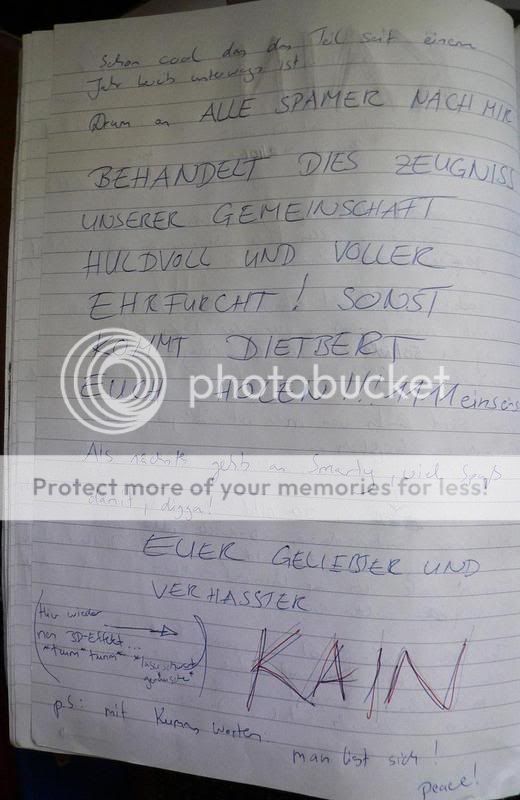 Schon cool das das Teil seit einem
Jahr unterwegs ist.
Drum an ALLE SPAMER NACH MIR
BEHANDELT DIES ZEUGNISS
UNSERER GEMEINSCHAFT
HULDVOLL UND VOLLER
EHRFURCHT! SONST
KOMMT DIETBERT
EUCH HOLEN!!!
photobucket
Als nächstes gehts an Smarty, viel Spaß
Protect more of your memories for less!
damit, digga!
EUER GELIEBTER UND
VERHASSTER
Hier wieder
nen 3D-Effekt...
*tüm* *tüm*
KAIN
ps: mit Worten
man liest sich!
peace!